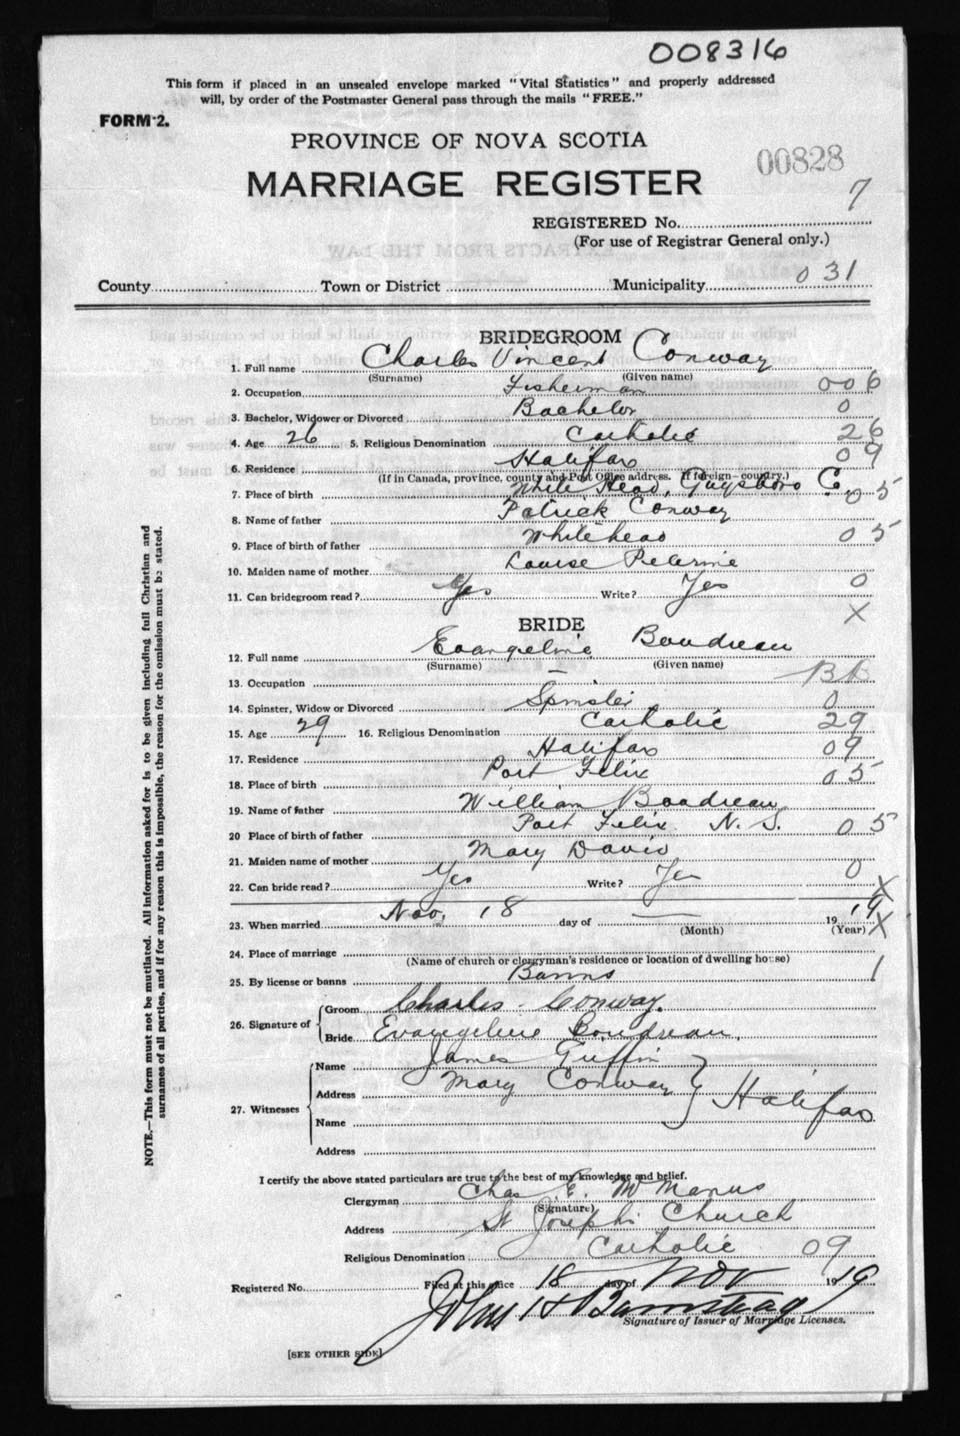 008316
This form if placed in an unsealed envelope marked "Vital Statistics" and properly addressed
will, by order of the Postmaster General pass through the mails "FREE."
FORM 2.
PROVINCE OF NOVA SCOTIA
00828
MARRIAGE REGISTER
7
REGISTERED No.
(For use of Registrar General only.)
County Town or District Municipality 031
BRIDEGROOM
1. Full name Charles Vincent Conway
(Surname) (Given name)
2. Occupation Fisherman 006
3. Bachelor, Widower or Divorced Bachelor 0
4. Age 26 5. Religious Denomination Catholic 26
6. Residence Halifax 09
(If in Canada, province, county and Post Office address. If foreign—country.)
7. Place of birth White Head, Guysboro Co. 05
8. Name of father Patrick Conway
9. Place of birth of father Whitehead 05
10. Maiden name of mother Louise Pelerine
11. Can bridegroom read? Yes Write? Yes 0
X
BRIDE
12. Full name Evangeline Boudreau
(Surname) (Given name)
13. Occupation —
14. Spinster, Widow or Divorced Spinster 0
15. Age 29 16. Religious Denomination Catholic 29
17. Residence Halifax 09
18. Place of birth Port Felix 05
19. Name of father William Boudreau
20 Place of birth of father Port Felix N. S. 05
21. Maiden name of mother Mary David
22. Can bride read? Yes Write? Yes 0
X
23. When married Nov. 18 day of — 19 19 X
(Month) (Year)
24. Place of marriage
(Name of church or clergyman's residence or location of dwelling house)
25. By license or banns Banns 1
26. Signature of Groom Charles Conway.
Bride Evangeline Boudreau.
27. Witnesses Name James Griffin
Address Mary Conway } Halifax
Name
Address
I certify the above stated particulars are true to the best of my knowledge and belief.
Clergyman Chas E. McManus
(Signature)
Address St Joseph's Church
Religious Denomination Catholic 09
Registered No. Filed at this office 18 day of Nov 19 19
John H Barnstead
Signature of Issuer of Marriage Licenses.
[SEE OTHER SIDE]
NOTE.—This form must not be mutilated. All information asked for is to be given including full Christian and
surnames of all parties, and if for any reason this is impossible, the reason for the omission must be stated.